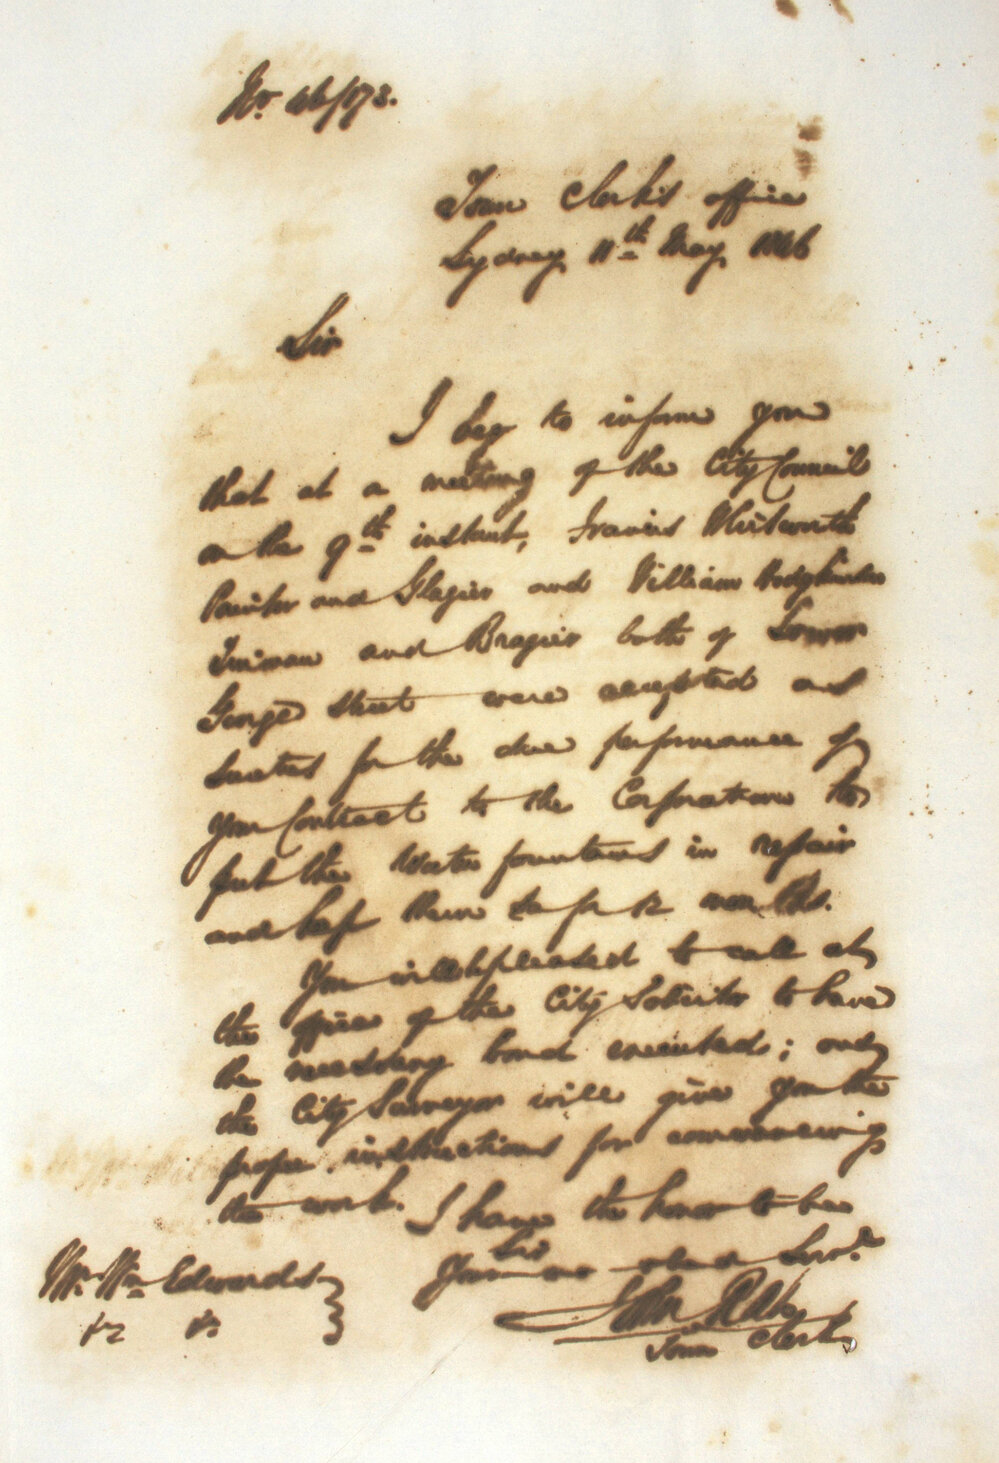 No. 46/173.
Town Clerk's office
Sydney 11th May 1846
Sir
I beg to inform you
that at a meeting of the City Council
on the 9th instant, Francis Whitworth
Painter and Glazier and William Hodgkinson
Tinman and Brazier both of Lower
George Street were accepted as
sureties for the due performance of
your Contract to the Corporation to
put the Water fountains in repair
and keep them so for 12 months.
You will be pleased to call at
the office of the City Solicitor to have
the necessary bond executed; and
the City Surveyor will give you the
proper instructions for commencing
the work. I have the honor to be
Sir
Your mo obed Servt.
John Rae
Town Clerk
Mr. Wm Edwards